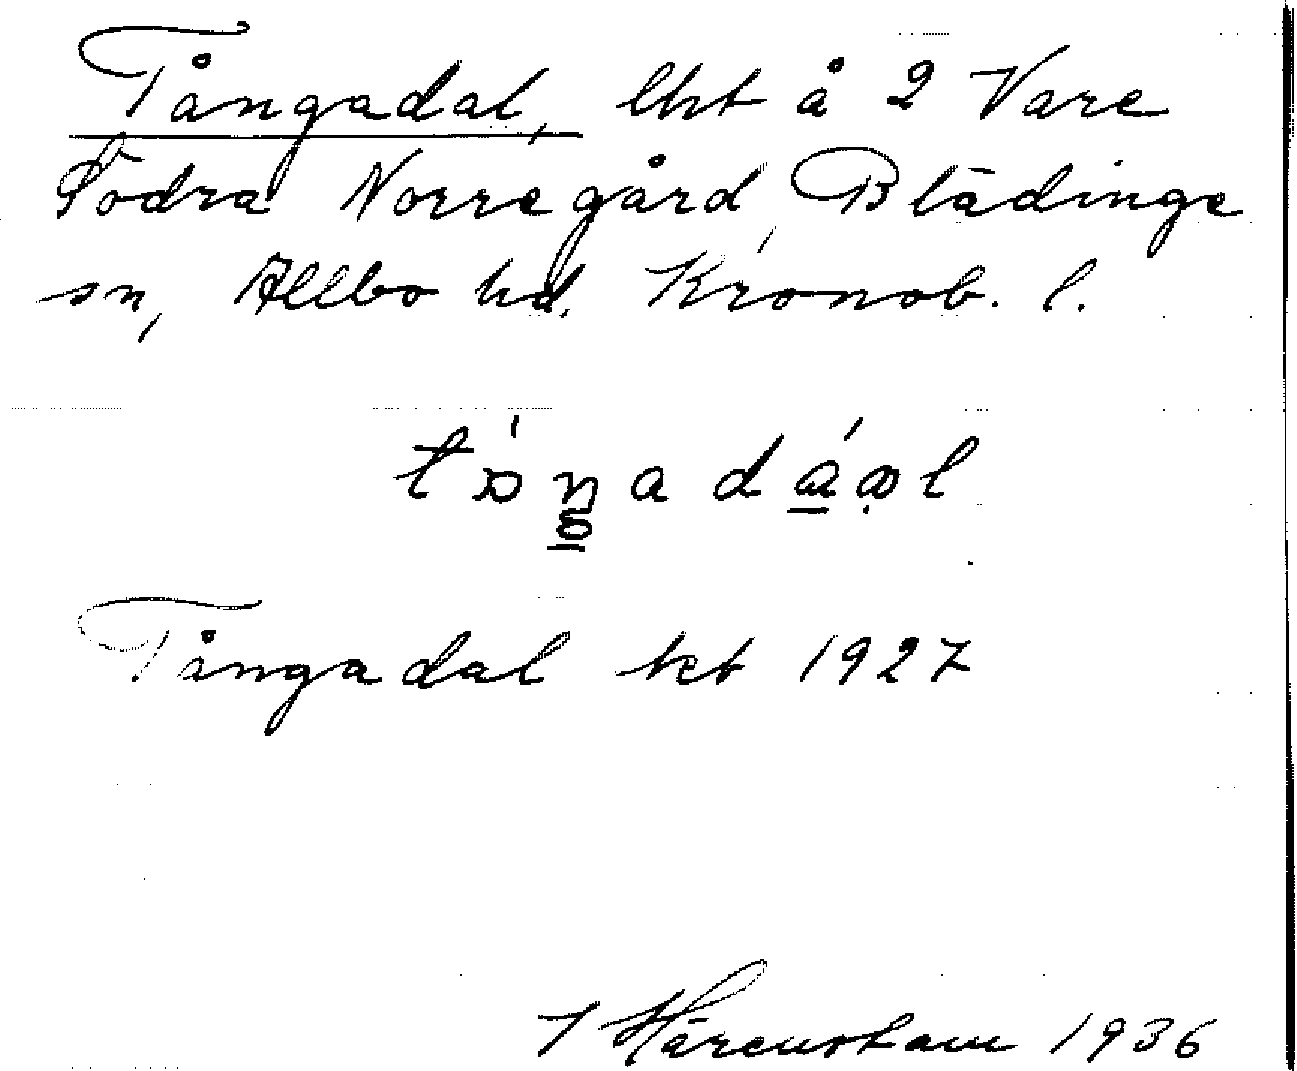 Tångadal, lht å 2 Vare
Södra Norregård, Blädinge
sn, Allbo hd. Kronob. l.
Tångadal kt 1927
I Härenstam 1936